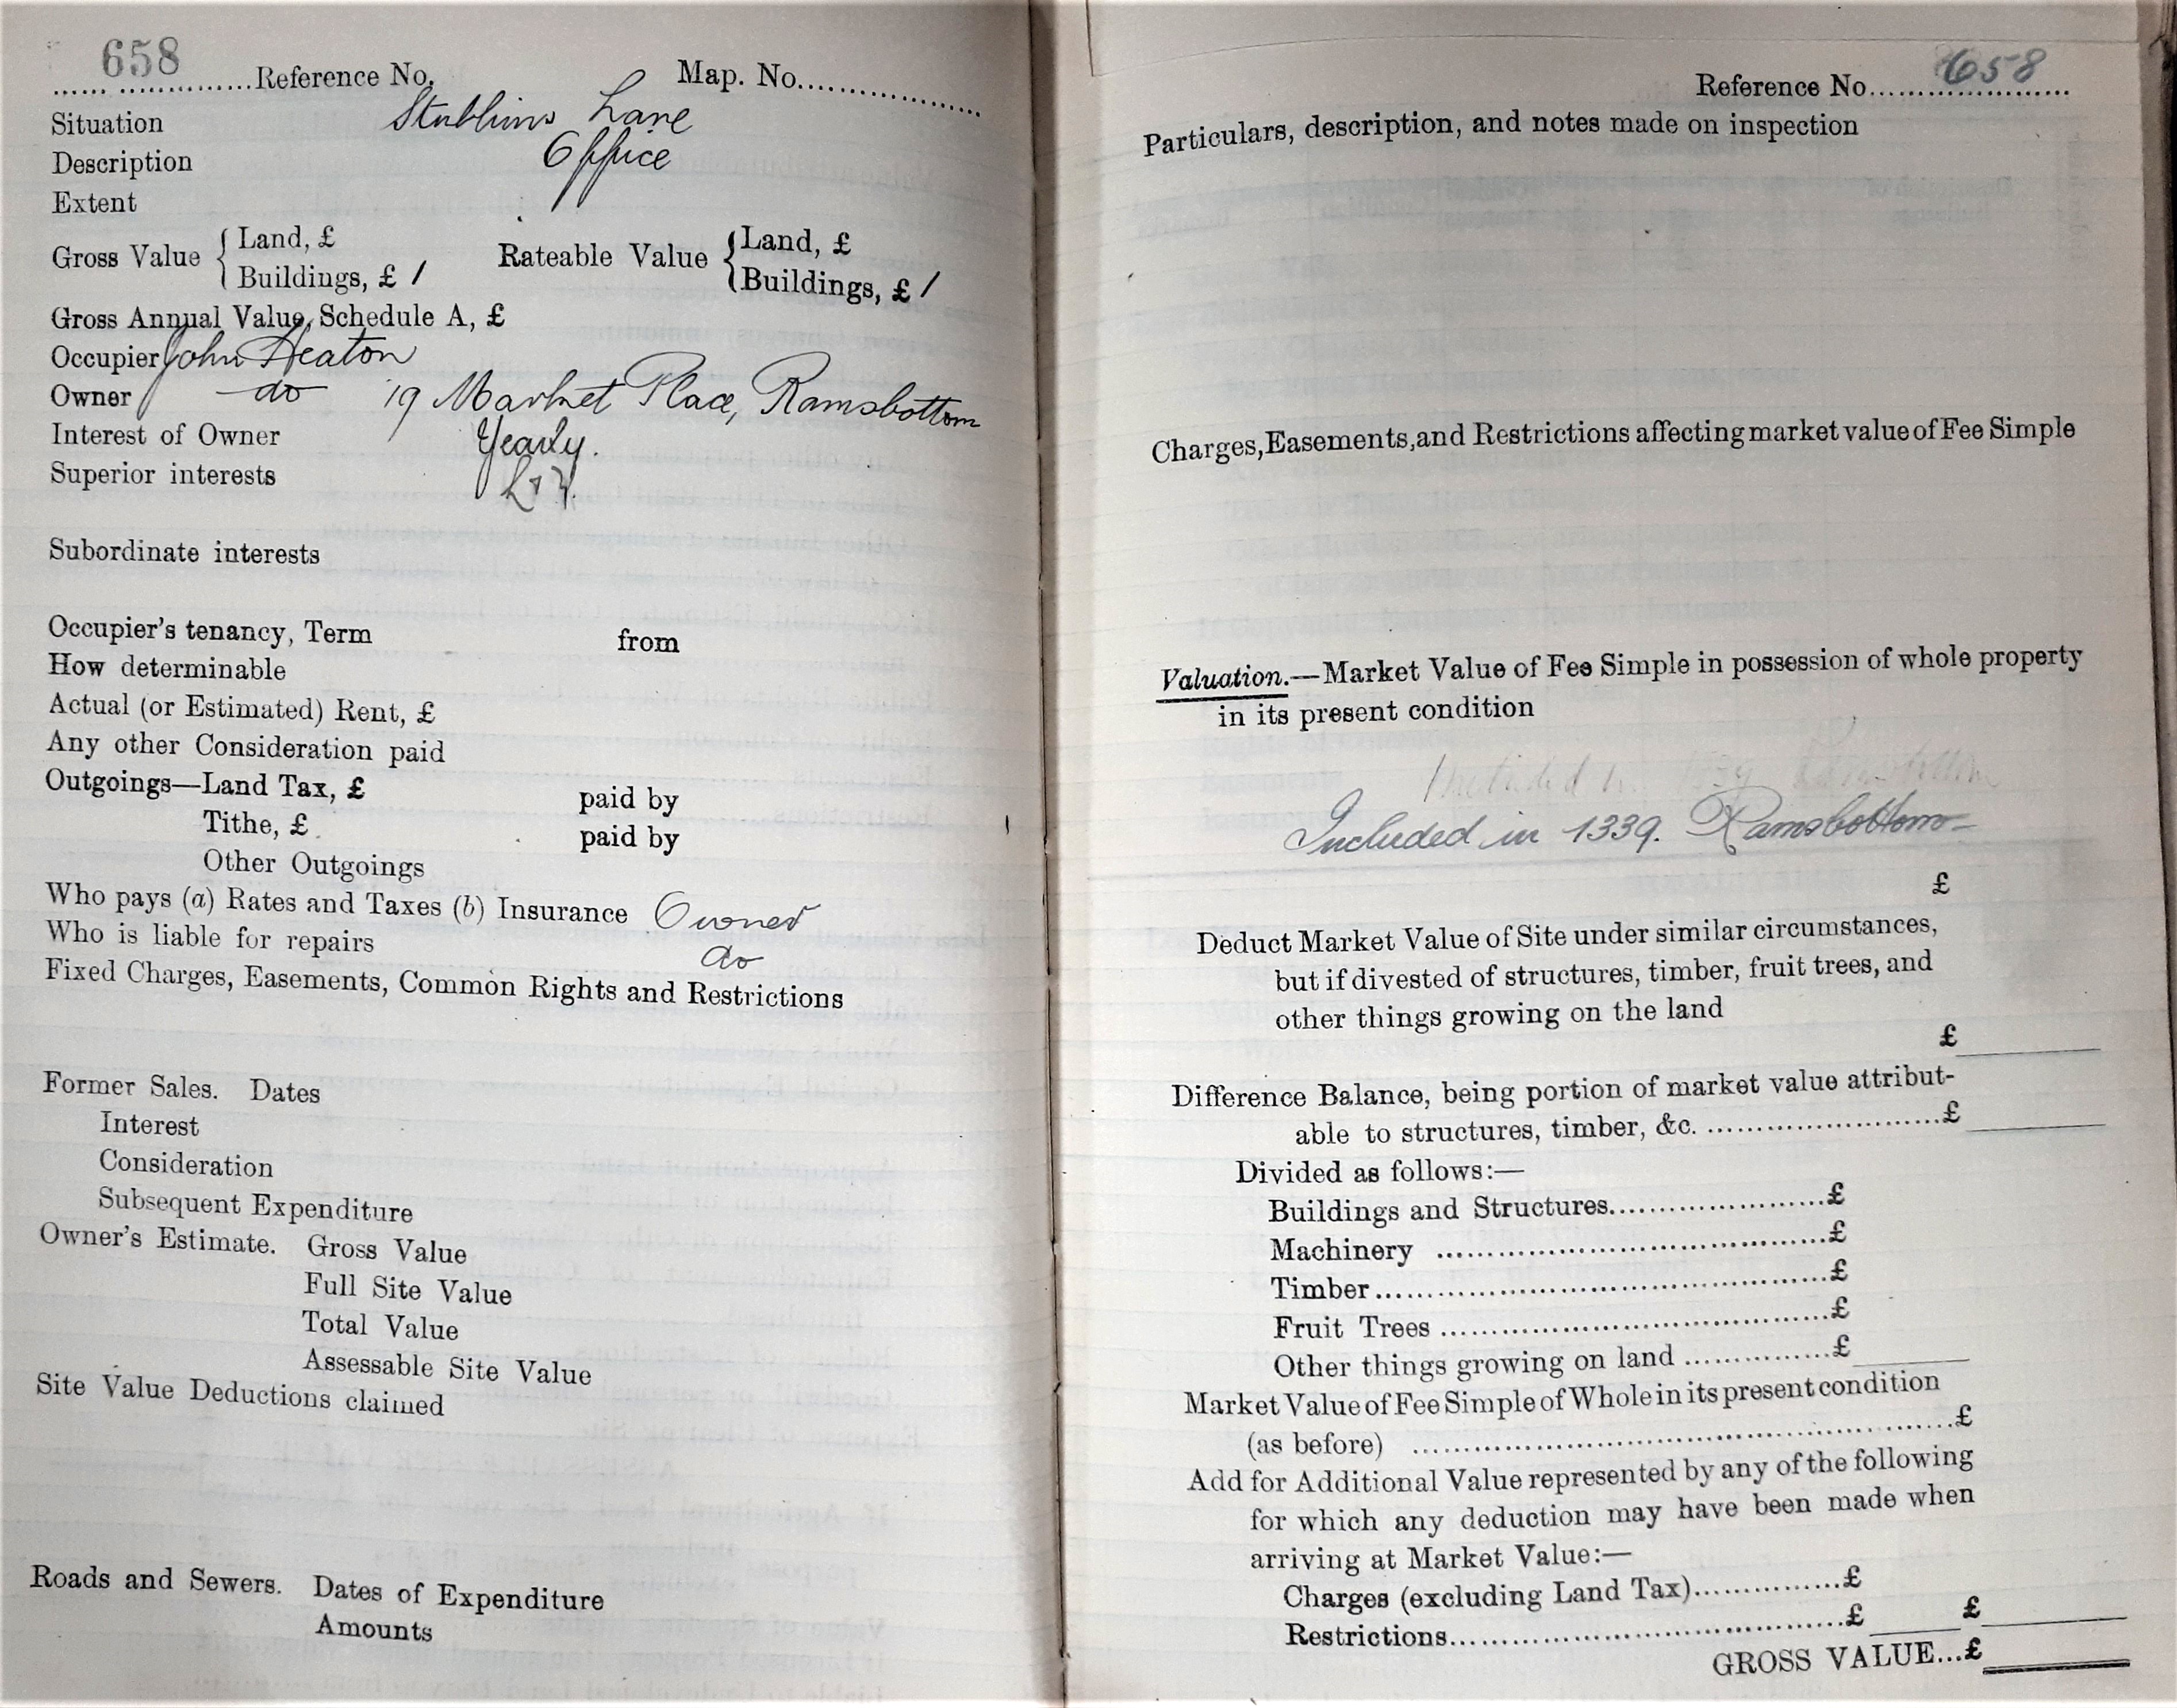 658
Reference No. Map. No.
Situation Stubbins Lane
Description Office
Extent
Gross Value { Land, £
Buildings, £ 1
Rateable Value { Land, £
Buildings, £ 1
Gross Annual Value, Schedule A, £
Occupier John Heaton
Owner do 19 Market Place, Ramsbottom
Interest of Owner Yearly.
Superior interests L & Y.
Subordinate interests
Occupier's tenancy, Term from
How determinable
Actual (or Estimated) Rent, £
Any other Consideration paid
Outgoings—Land Tax, £ paid by
Tithe, £ paid by
Other Outgoings
Who pays (a) Rates and Taxes (b) Insurance Owner
Who is liable for repairs do
Fixed Charges, Easements, Common Rights and Restrictions
Former Sales. Dates
Interest
Consideration
Subsequent Expenditure
Owner's Estimate. Gross Value
Full Site Value
Total Value
Assessable Site Value
Site Value Deductions claimed
Roads and Sewers. Dates of Expenditure
Amounts
Reference No. 658
Particulars, description, and notes made on inspection
Charges, Easements, and Restrictions affecting market value of Fee Simple
Valuation.—Market Value of Fee Simple in possession of whole property
in its present condition
Included in 1339 Ramsbottom
Included in 1339. Ramsbottom
£
Deduct Market Value of Site under similar circumstances,
but if divested of structures, timber, fruit trees, and
other things growing on the land
£
Difference Balance, being portion of market value attribut-
able to structures, timber, &c. £
Divided as follows:—
Buildings and Structures £
Machinery £
Timber £
Fruit Trees £
Other things growing on land £
Market Value of Fee Simple of Whole in its present condition
(as before) £
Add for Additional Value represented by any of the following
for which any deduction may have been made when
arriving at Market Value:—
Charges (excluding Land Tax) £
Restrictions £ £
GROSS VALUE...£